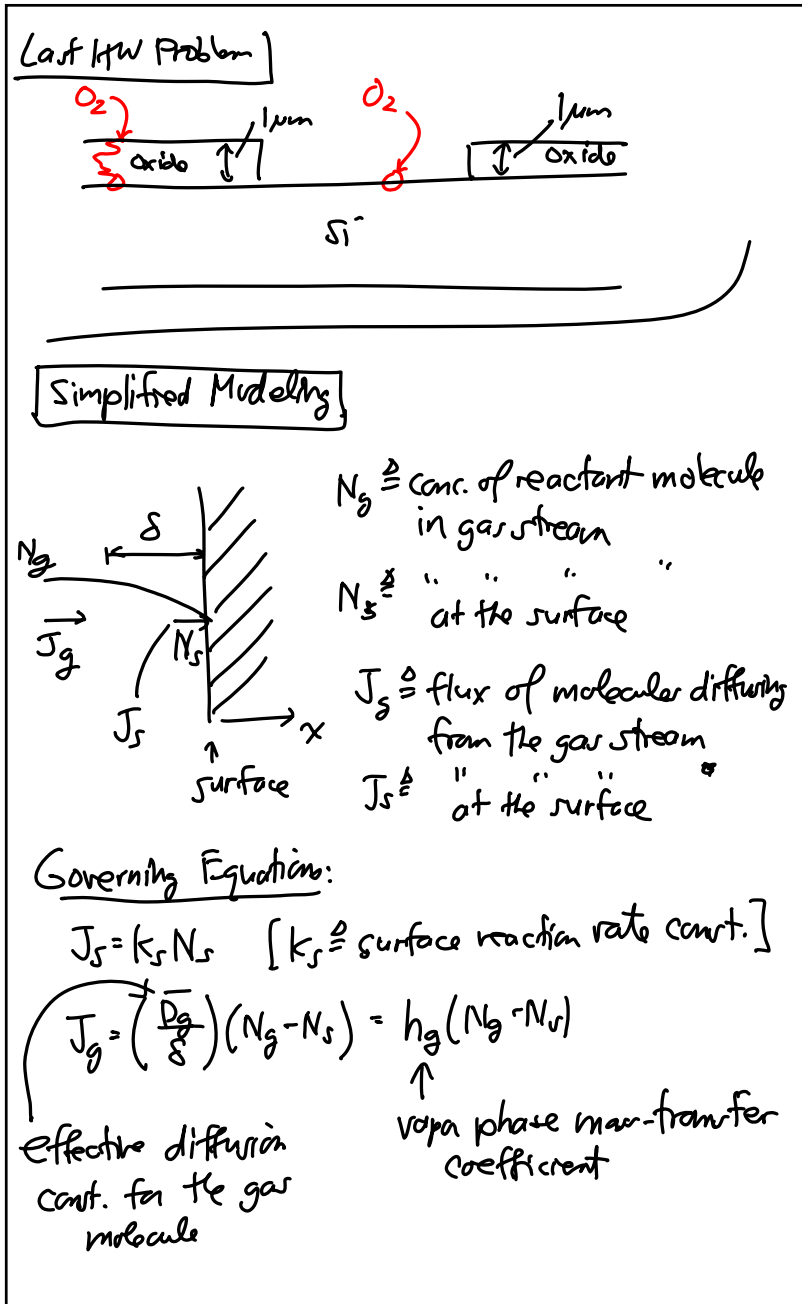 Last HW Problem
O₂ O₂
1μm 1μm
oxide oxide
Si
Simplified Modeling
δ
N_g
J_g N_s
J_s
x
surface
N_g ≜ conc. of reactant molecule
in gas stream
N_s ≜ " " " "
at the surface
J_g ≜ flux of molecules diffusing
from the gas stream
J_s ≜ " " "
at the surface
Governing Equations:
J_s = k_s N_s [k_s ≜ surface reaction rate const.]
J_g = (D_g/δ)(N_g - N_s) = h_g(N_g - N_s)
effective diffusion
const. for the gas
molecule
vapor phase mass-transfer
coefficient